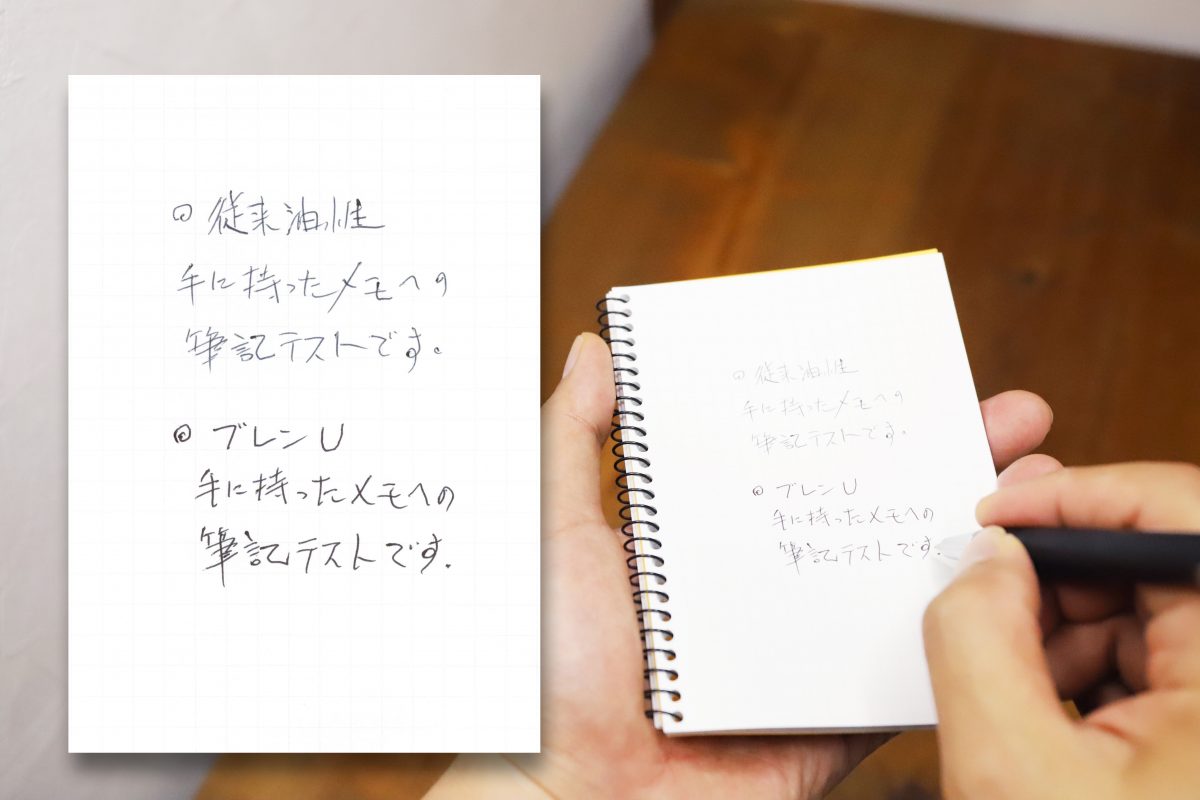 ◎ 従来油性
手に持ったメモへの
筆記テストです。
◎ ブレンU
手に持ったメモへの
筆記テストです.
従来油性
手に持ったメモへの
筆記テストです。
◎ ブレンU
手に持ったメモへの
筆記テストです.